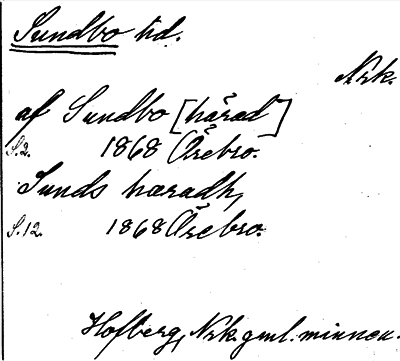 Sundbo hd.
Nrk.
af Sundbo [härad]
S.2. 1868 Örebro.
Sunds hæradh,
S.12. 1868 Örebro.
Hofberg, Nrk. gml. minnen.